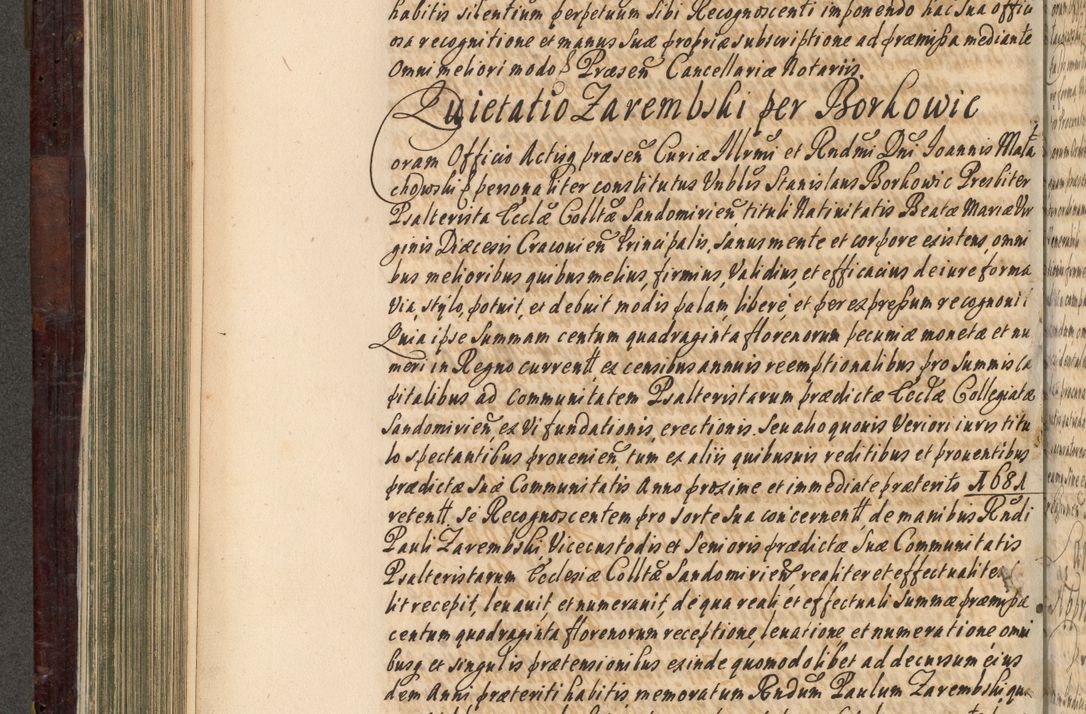 habitis silentium perpetuum sibi Recognoscenti imponendo hac sua offici
osa recognitione et manus suæ propriæ subscriptione ad præmissa mediante
Omni meliori modo Præseñ Cancellariæ Notariis.
Quietatio Zarembski per Borkowic
Coram Officio Actisq præseñ Curiæ Illrmi et Rndmi Dni Joannis Mala
chowski personaliter constitutus Vnblis Stanislaus Borkowic Presbiter
Psalterista Ecclæ Colltæ Sandomirieñ tituli Nativitatis Beatæ Mariæ Vir
ginis Diæcesis Cracovieñ Principalis, sanus mente et corpore existens, omni
bus melioribus quibus melius, firmius, validius, et efficacius de iure forma
via, stylo, potuit, et debuit modis palam, liberè, et per expressum recognovit
Quia ipse summam centum quadraginta florenorum pecuniæ monetæ et nu
meri in Regno currentt ex censibus annuis reemptionalibus pro summis ca
pitalibus ad Communitatem Psalteristarum prædictæ Ecclæ Collegiatæ
Sandomirieñ ex vi fundationis, erectionis. Seu alio quovis veriori iuris titu
lo spectantibus provenieñ, tum ex aliis quibusvis reditibus et proventibus
prædictæ suæ Communitatis Anno proxime et immediate præterito 1681
retentt, se Recognoscentem pro sorte sua concernentt de manibus Rndi
Pauli Zarembski Vicecustodis et Senioris prædictæ suæ Communitatis
Psalteristarum Ecclesiæ Colltæ Sandomirieñ realiter et effectualiter
lit recepit, levavit et numeravit, de qua reali et effectuali summæ præmissæ
centum quadraginta florenorum receptione, levatione et numeratione omni
busq et singulis prætensionibus exinde quomodolibet ad decursum eius
dem Anni præteriti habitis memoratum Rndum Paulum Zarembski qu